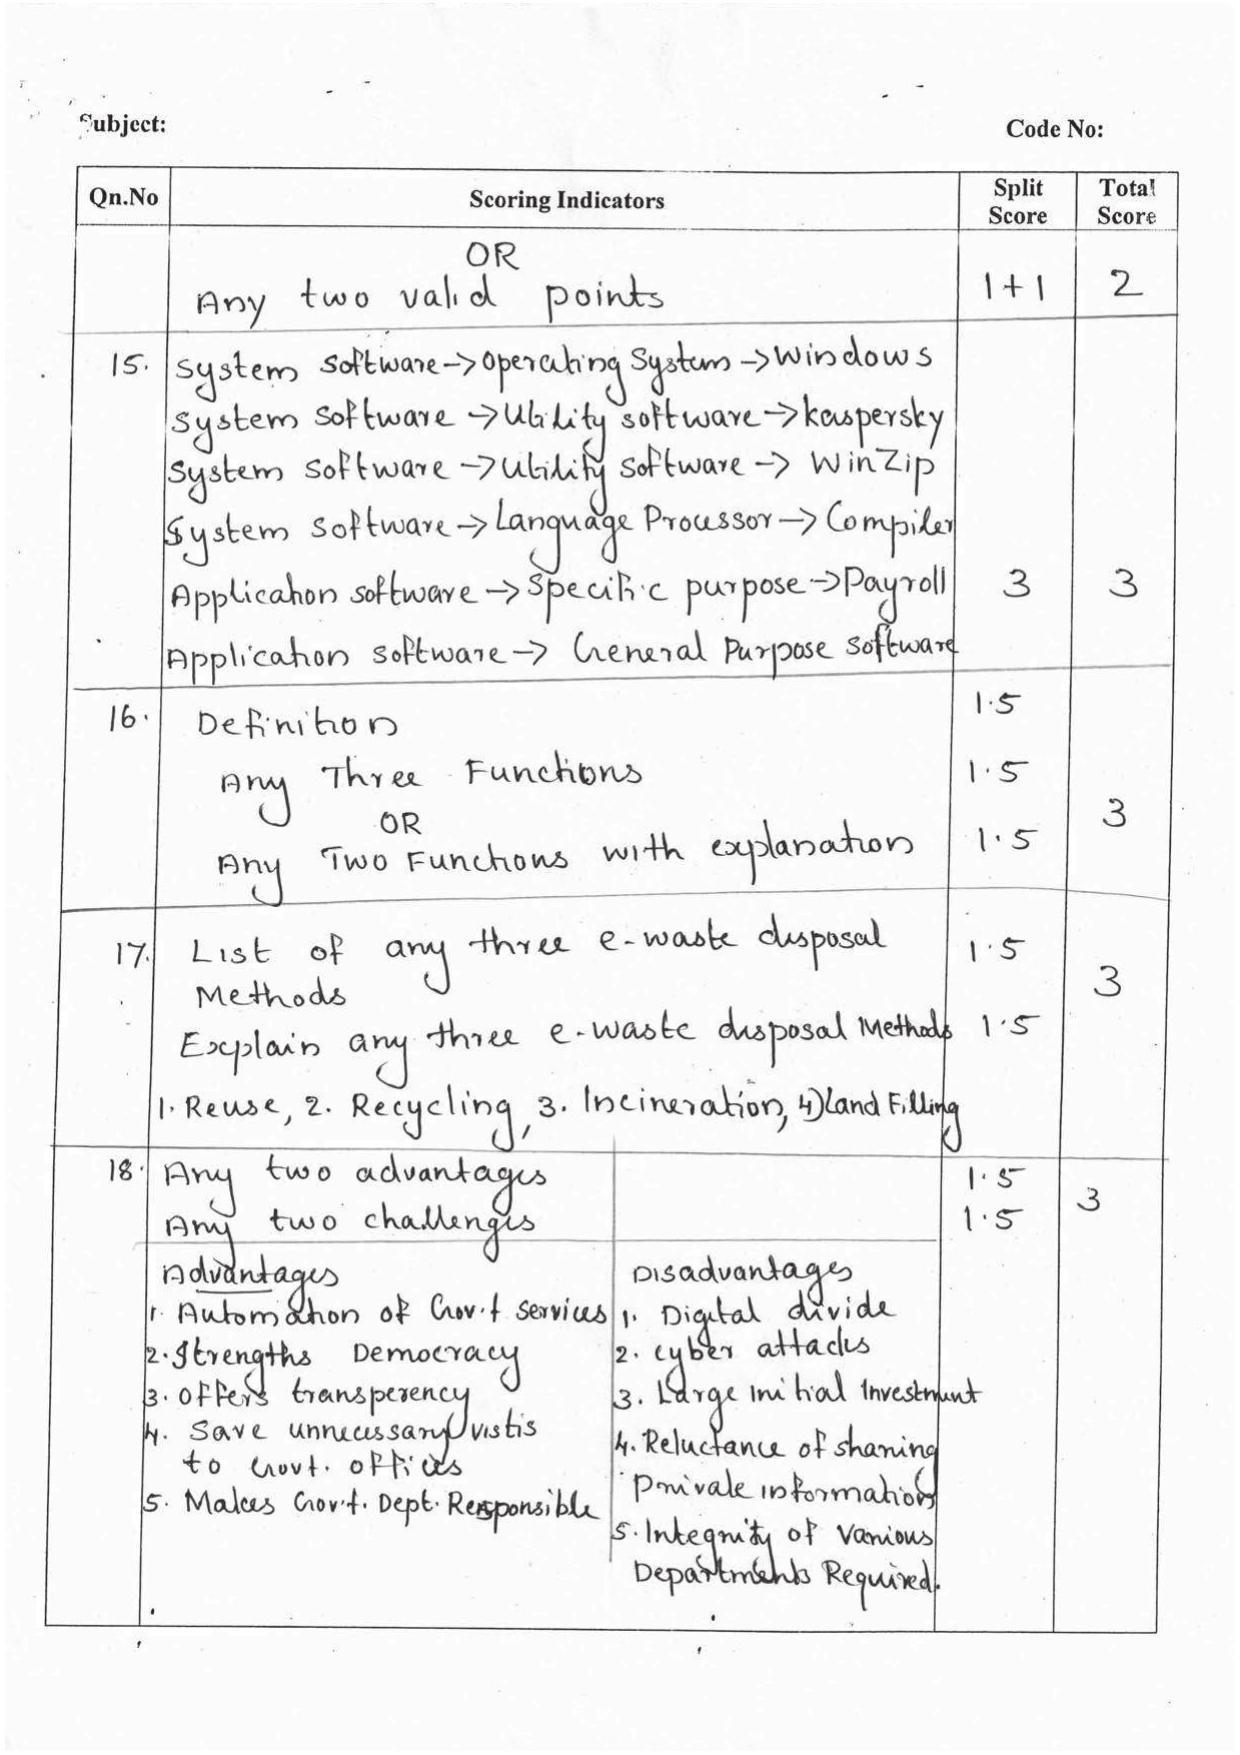 Subject:
Code No:
Qn.No Scoring Indicators Split Score Total Score
OR
Any two valid points 1+1 2
15. System Software->Operating System->Windows
System Software->Utility software->kaspersky
System Software->Utility Software-> WinZip
System Software->Language Processor->Compiler
Application software->Specific purpose->Payroll 3 3
Application software-> General Purpose Software
16. Definition 1.5
Any Three Functions 1.5
OR 3
Any Two Functions with explanation 1.5
17. List of any three e-waste disposal 1.5
Methods 3
Explain any three e-waste disposal Methods 1.5
1. Reuse, 2. Recycling, 3. Incineration, 4) Land Filling
18. Any two advantages 1.5
Any two challenges 1.5 3
Advantages
1. Automation of Gov.t services
2. Strengths Democracy
3. offers transperency
4. Save unnecessary vistis
to Govt. offices
5. Makes Gov.t. Dept. Responsible
Disadvantages
1. Digital divide
2. cyber attacks
3. Large initial Investment
4. Reluctance of sharing
Private information
5. Integrity of Various
Departments Required.